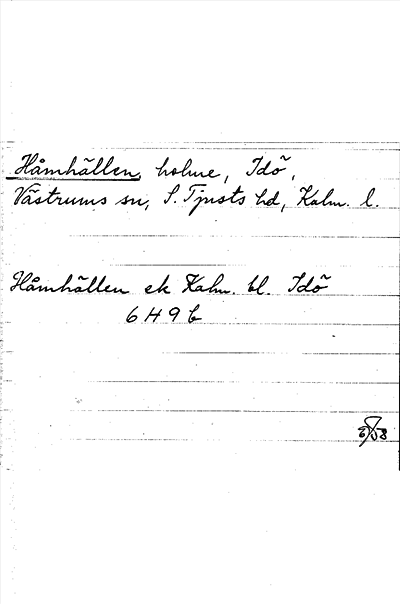 Håmhällen, holme, Idö,
Västrums sn, S. Tjusts hd, Kalm. l.
Håmhällen ek Kalm. bl. Idö
6 H 9 b